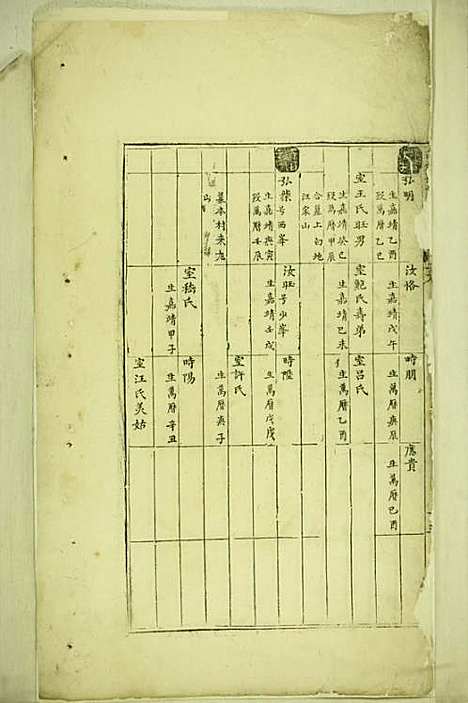 弘明
生嘉靖乙酉
歿萬曆乙巳
室王氏旺男
生嘉靖癸巳
歿萬曆甲辰
合塟上句地
汪家山
弘榮号西峯
生嘉靖庚寅
歿萬曆壬辰
墓本村來龍
山
汝恪
生嘉靖戊午
室鮑氏壽弟
生嘉靖己未
汝旺号少峯
生嘉靖壬戌
室孫氏
生嘉靖甲子
時朋
生萬曆庚辰
室呂氏
生萬曆乙酉
時陞
生萬曆戊戌
室許氏
生萬曆庚子
時陽
生萬曆辛丑
室汪氏美姑
應貴
生萬曆己酉